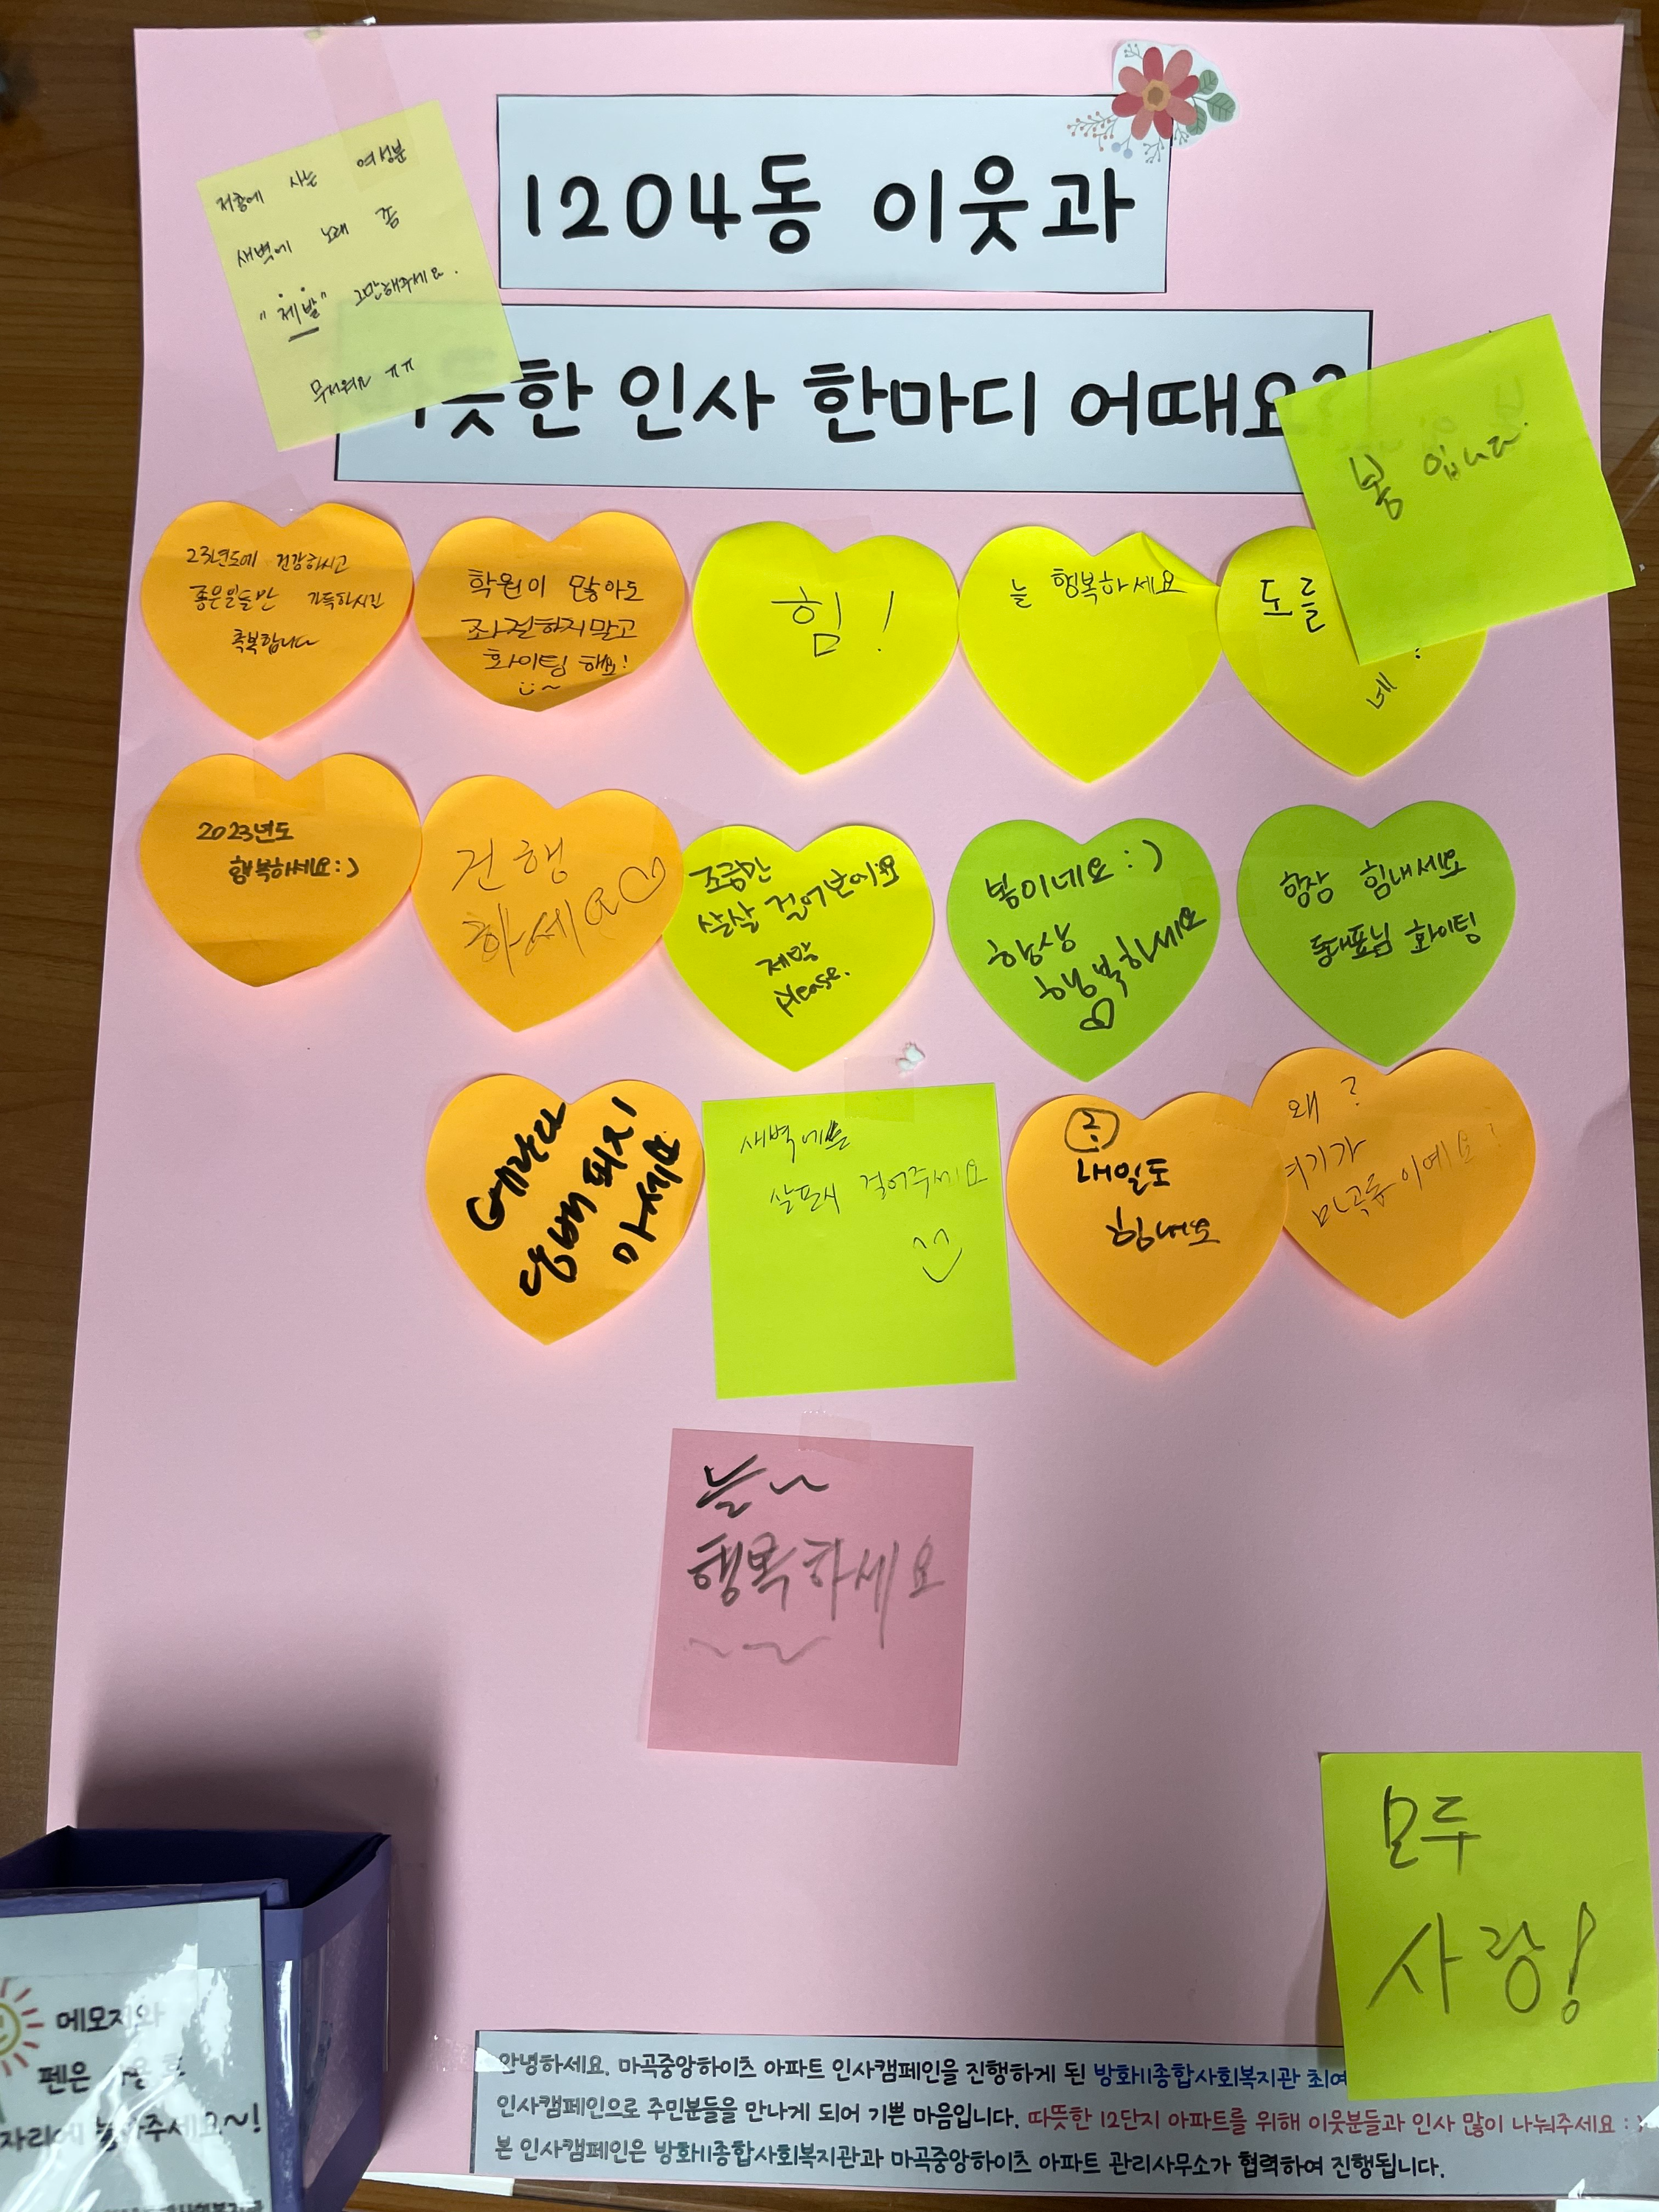 저층에 사는 여성분
새벽에 노래 좀
"제발" 그만해주세요.
무서워요 ㅠㅠ
1204동 이웃과
따뜻한 인사 한마디 어때요?
봄 입니다.
23년도에 건강하시고
좋은일들만 가득하시길
축복합니다
학원이 많아도
좌절하지말고
화이팅 해요!
힘!
늘 행복하세요
도를
네
2023년도
행복하세요:)
건행
하세요♡
조금만
살살 걸어보아요
제발
please.
봄이네요 :)
항상
행복하세요
♡
항상 힘내세요
동대표님 화이팅
베란다
담배 피지
마세요
새벽에는
살포시 걸어주세요
내일도
힘내요
왜?
여기가
마곡동이예요?
늘~
행복하세요
모두
사랑!
메모지와
펜은
자리에 놓아주세요~!
안녕하세요. 마곡중앙하이츠 아파트 인사캠페인을 진행하게 된 방화11종합사회복지관
인사캠페인으로 주민분들을 만나게 되어 기쁜 마음입니다. 따뜻한 12단지 아파트를 위해 이웃분들과 인사 많이 나눠주세요 : )
본 인사캠페인은 방화11종합사회복지관과 마곡중앙하이츠 아파트 관리사무소가 협력하여 진행됩니다.